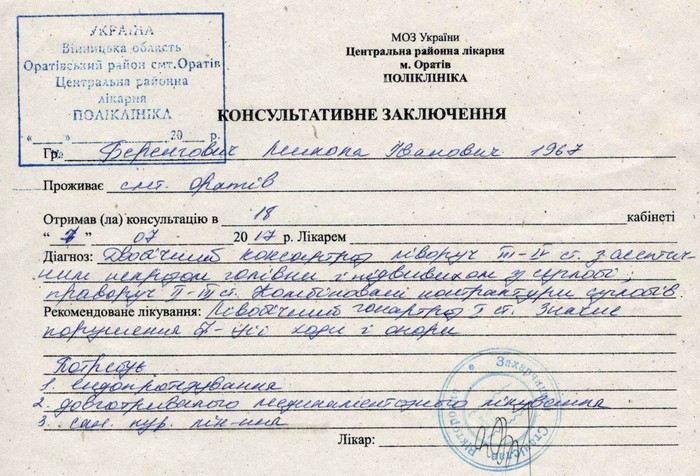 УКРАЇНА
Вінницька область
Оратівський район смт. Оратів
Центральна районна
лікарня
ПОЛІКЛІНІКА
"___"________20___р.
МОЗ України
Центральна районна лікарня
м. Оратів
ПОЛІКЛІНІКА
КОНСУЛЬТАТИВНЕ ЗАКЛЮЧЕННЯ
Гр. Іванович 1967
Проживає смт. Оратів
Отримав (ла) консультацію в 18 кабінеті
"7" 07 2017 р. Лікарем
Діагноз: Двобічний коксартроз ліворуч III-IV ст. з асептич-
ним некрозом голівки і підвивихом у суглобі,
праворуч II-III ст. Комбіновані контрактури суглобів
Рекомендоване лікування: Лівобічний гонартроз I ст. Значне
порушення ф-ції ходи і опори
Потребує
1. ендопротезування
2. довготривалого медикаментозного лікування
3. сан. кур. лік-ння
Лікар:
Захарчишин
Станіслав
Вікторович